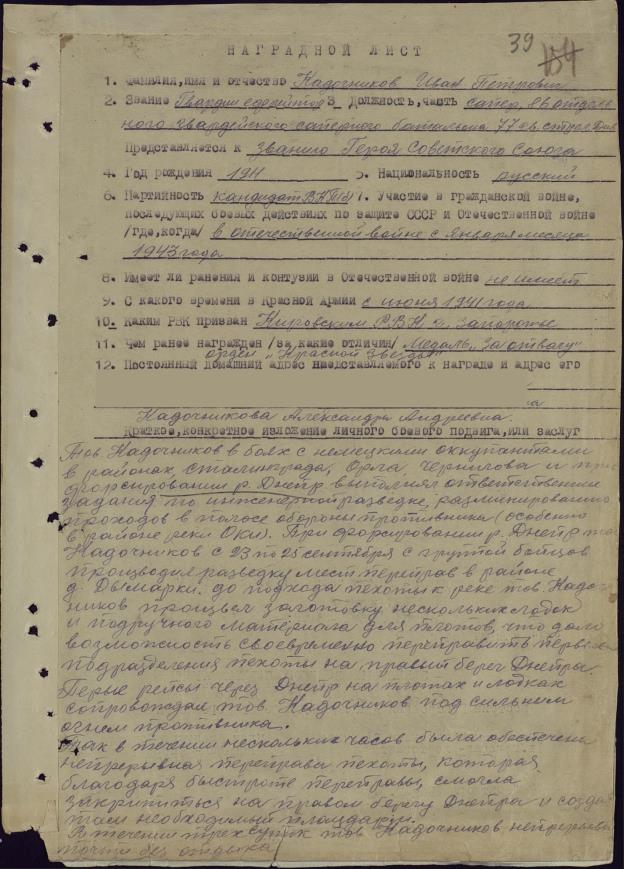 39
НАГРАДНОЙ ЛИСТ
1. Фамилия,имя и отчество Надочников Иван Петрович
2. Звание Гвардии ефрейтор 3 Должность,часть сапер, 86 отдель
ного гвардейского саперного батальона 77 гв. стрел. див
Представляется к званию Героя Советского Союза
4. Год рождения 1911 5. Национальность русский
6. Партийность кандидат ВКП(б) 7. Участие в гражданской войне,
последующих боевых действиях по защите СССР и Отечественной войне
/где,когда/ в отечественной войне с января месяца
1943 года
8. Имеет ли ранения и контузии в Отечественной войне не имеет
9. С какого времени в Красной Армии с июня 1941 года
10. Каким РВК призван Кировским Р.В.К. г. Запорожье
11. Чем ранее награжден /за какие отличия/ Медаль "За отвагу"
орден "Красной Звезды"
12. Постоянный домашний адрес представляемого к награде и адрес его
а
Надочникова Александра Андреевна.
Краткое,конкретное изложение личного боевого подвига,или заслуг
Тов. Надочников в боях с немецкими оккупантами
в районах Сталинграда, Орла, Чернигова и при
форсировании р. Днепр выполнял ответственные
задания по инженерной разведке, разминированию
проходов в полосе обороны противника (особенно
в районе реки Оки). При форсировании р. Днепр тов
Надочников с 23 по 25 сентября с группой бойцов
производил разведку мест переправ в районе
д. Дымарки. до подхода пехоты к реке тов. Надоч
ников произвел заготовку нескольких лодок
и подручного материала для плотов, что дало
возможность своевременно переправить первые
подразделения пехоты на правый берег Днепры.
Перые рейсы через Днепр на плотах и лодках
сопровождал тов. Надочников под сильным
огнем противника.
Так в течении нескольких часов была обеспечена
непрерывная переправа пехоты, которая
благодаря быстроте переправы, смогла
закрепиться на правом берегу Днепра и созда
там необходимый плацдарм.
В течении трех суток тов Надочников непрерывн
почти без отдыха